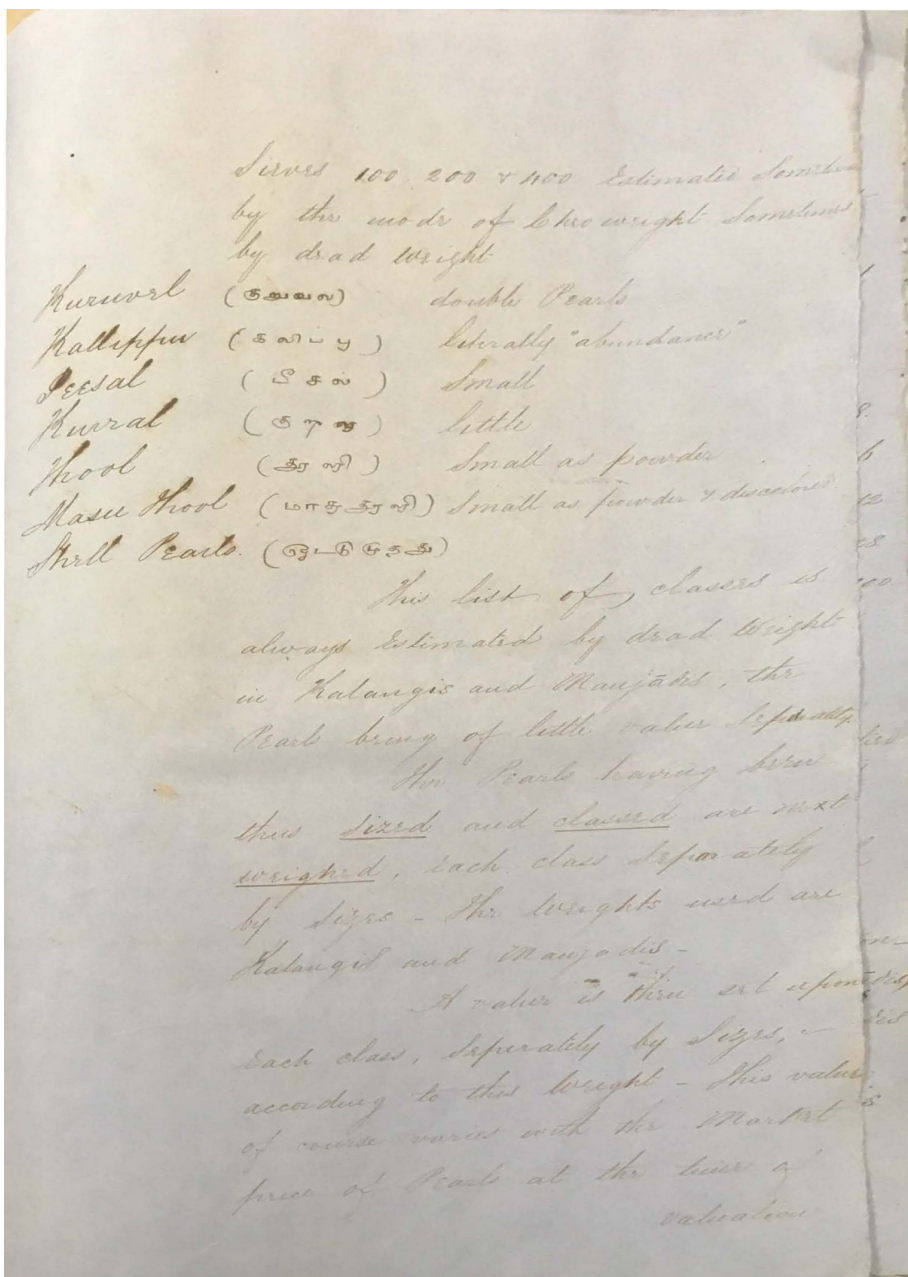 Sieves 100 200 & 400 Estimated Sometimes
by the mode of Cheoweight Sometimes
by dead weight
Kuruvel (குறுவல) double Pearls
Kallippu (கலிப்பு) literally "abundance"
Peesal (பீசல்) Small
Kurral (குறல) little
Thool (தூள்) Small as powder
Masu Thool (மாசுதூள்) Small as powder & discolored
Shell Pearls. (ஓட்டுமுத்து)
This list of classes is
always Estimated by dead Weight
in Kalangis and Manjādis, the
Pearls being of little value Seperately
The Pearls having been
thus sized and classed are next
weighed, Each class Seperately
by Sizes - The Weights used are
Kalangis and Manjodis -
A value is then set upon
Each class, Seperately by Sizes, -
according to this Weight - This value
of course varies with the Market
price of Pearls at the time of
valuation